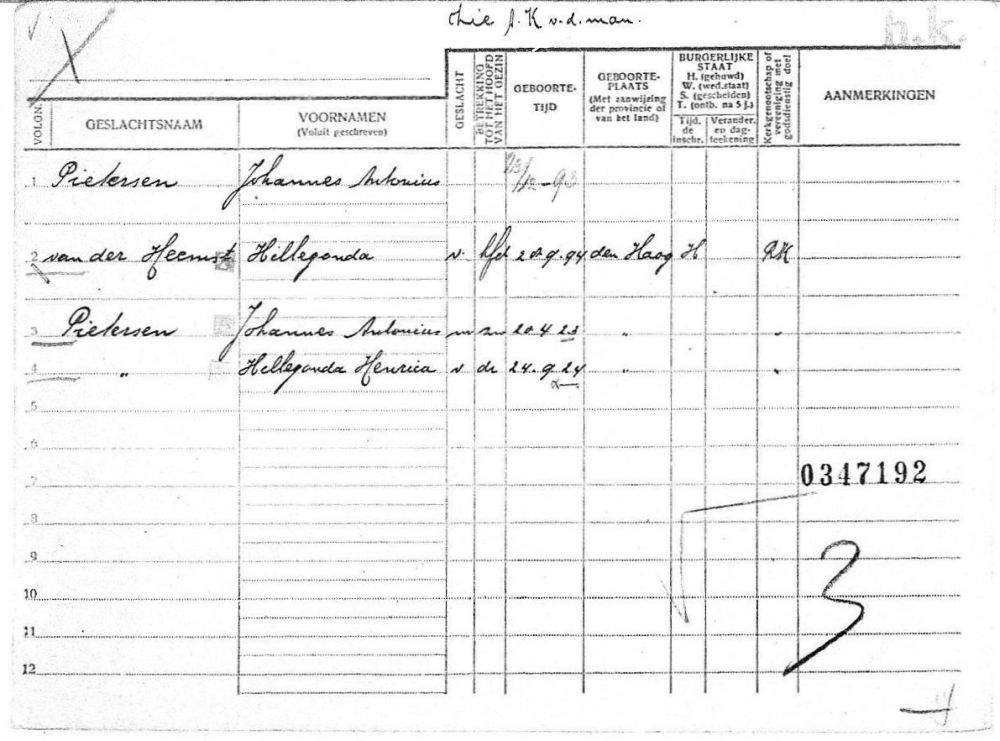 zie p. K v. d. man.
h.k.
VOLGN.
GESLACHTSNAAM
VOORNAMEN
(Voluit geschreven)
GESLACHT
BETREKKING
TOT HET HOOFD
VAN HET GEZIN
GEBOORTE-
TIJD
GEBOORTE-
PLAATS
(Met aanwijzing
der provincie of
van het land)
BURGERLIJKE
STAAT
H. (gehuwd)
W. (wed.staat)
S. (gescheiden)
T. (ontb. na 5 j.)
Tijd.
de
inschr.
Verander.
en dag-
teekening
Kerkgenootschap of
vereeniging met
godsdienstig doel
AANMERKINGEN
1 Pietersen Johannes Antonius -93
2 van der Heemst Hillegonda v. hfd 20.9.94 den Haag H RK
3 Pietersen Johannes Antonius m zn 20 4 23 " "
4 " Hillegonda Henrica v dr 24.9.24 " "
5
6
7
0347192
8
9
10
3
11
12